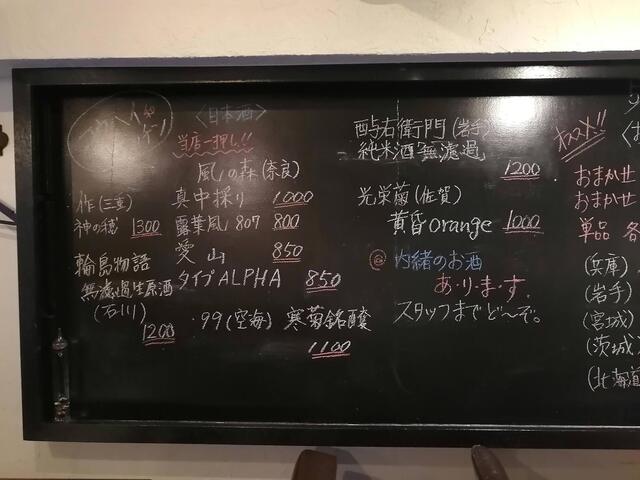 〈日本酒〉
当店一押し!!
風の森(奈良)
真中採り 1,000
露葉風 807 800
愛山 850
タイプALPHA 850
作(三重)
神の穂 1300
輪島物語
無濾過生原酒
(石川)
1200
・99(空海) 寒菊銘醸
1100
酉与右衛門(岩手)
純米酒無濾過
1200
光栄菊(佐賀)
黄昏orange 1000
㊙ 内緒のお酒
あ・り・ま・す。
スタッフまでど〜ぞ。
オススメ!!
おまかせ
おまかせ
単品 各
(兵庫)
(岩手)
(宮城)
(茨城)
(北海道